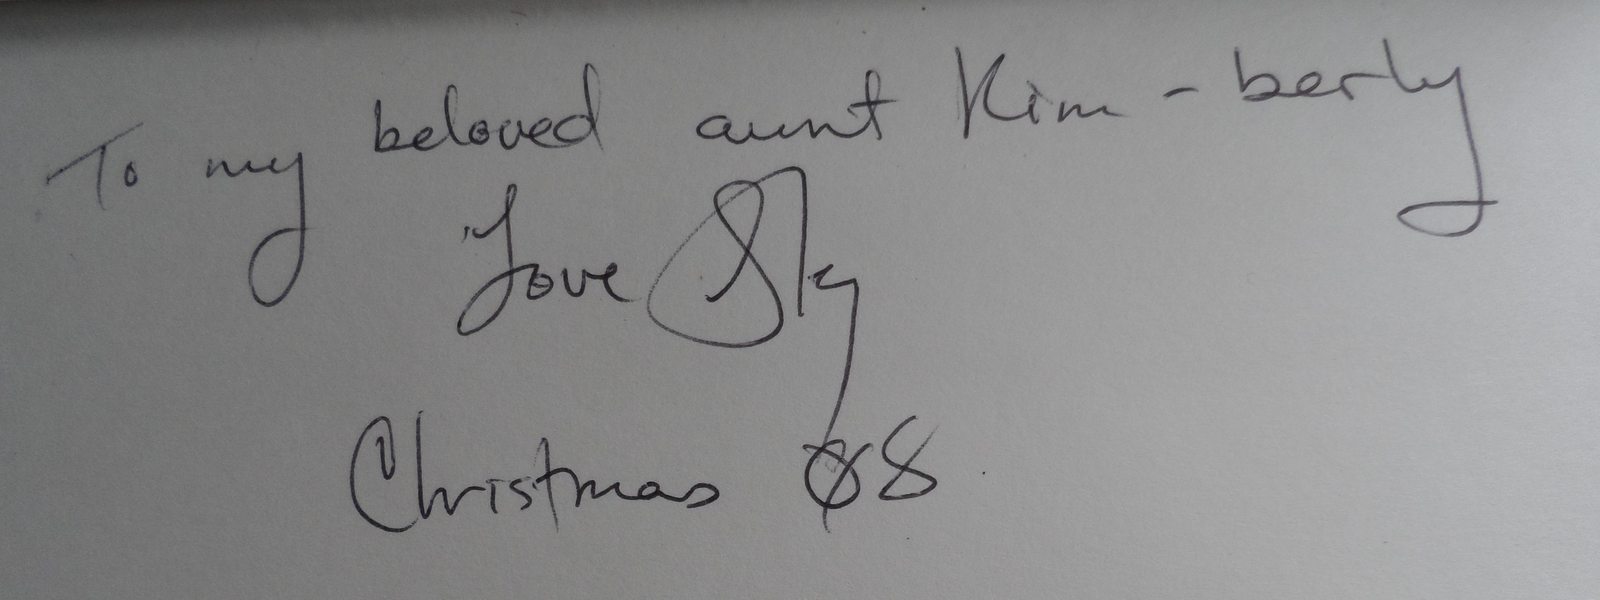 To my beloved aunt Kim-berly
Love Sky
Christmas 08